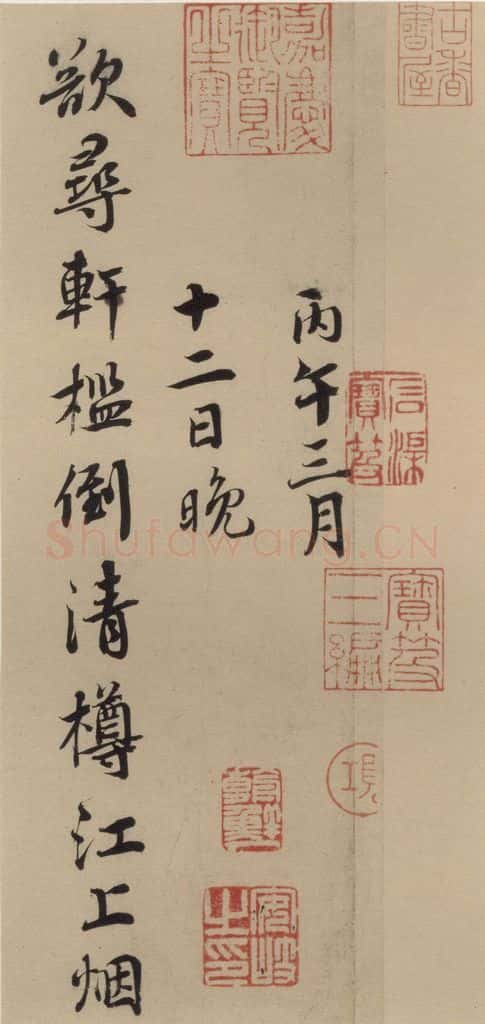 古香書屋
嘉慶御覽之寶
丙午三月
石渠寶笈
寶笈三編
十二日晚
安岐之印
欲尋軒檻倒清樽江上烟
Shufawang.CN